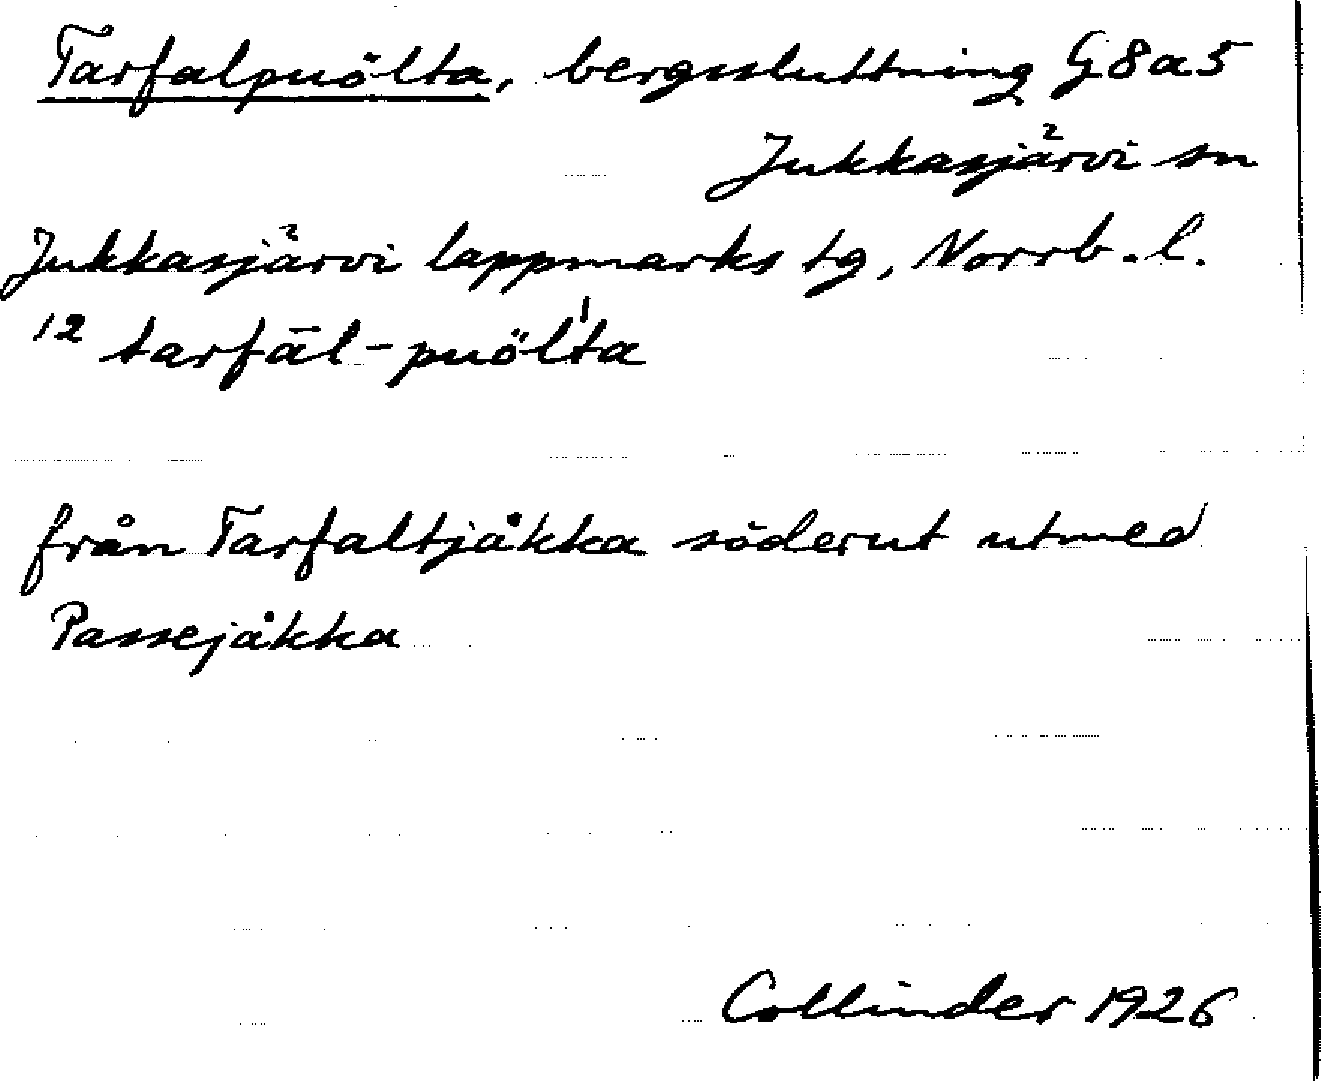 Tarfalpuölta, bergssluttning G8a5
Jukkasjärvi sn
Jukkasjärvi lappmarks tg, Norrb. l.
12 tarfāl-puöl'ta
från Tarfaltjåkka söderut utmed
Passejåkka
Collinder 1926